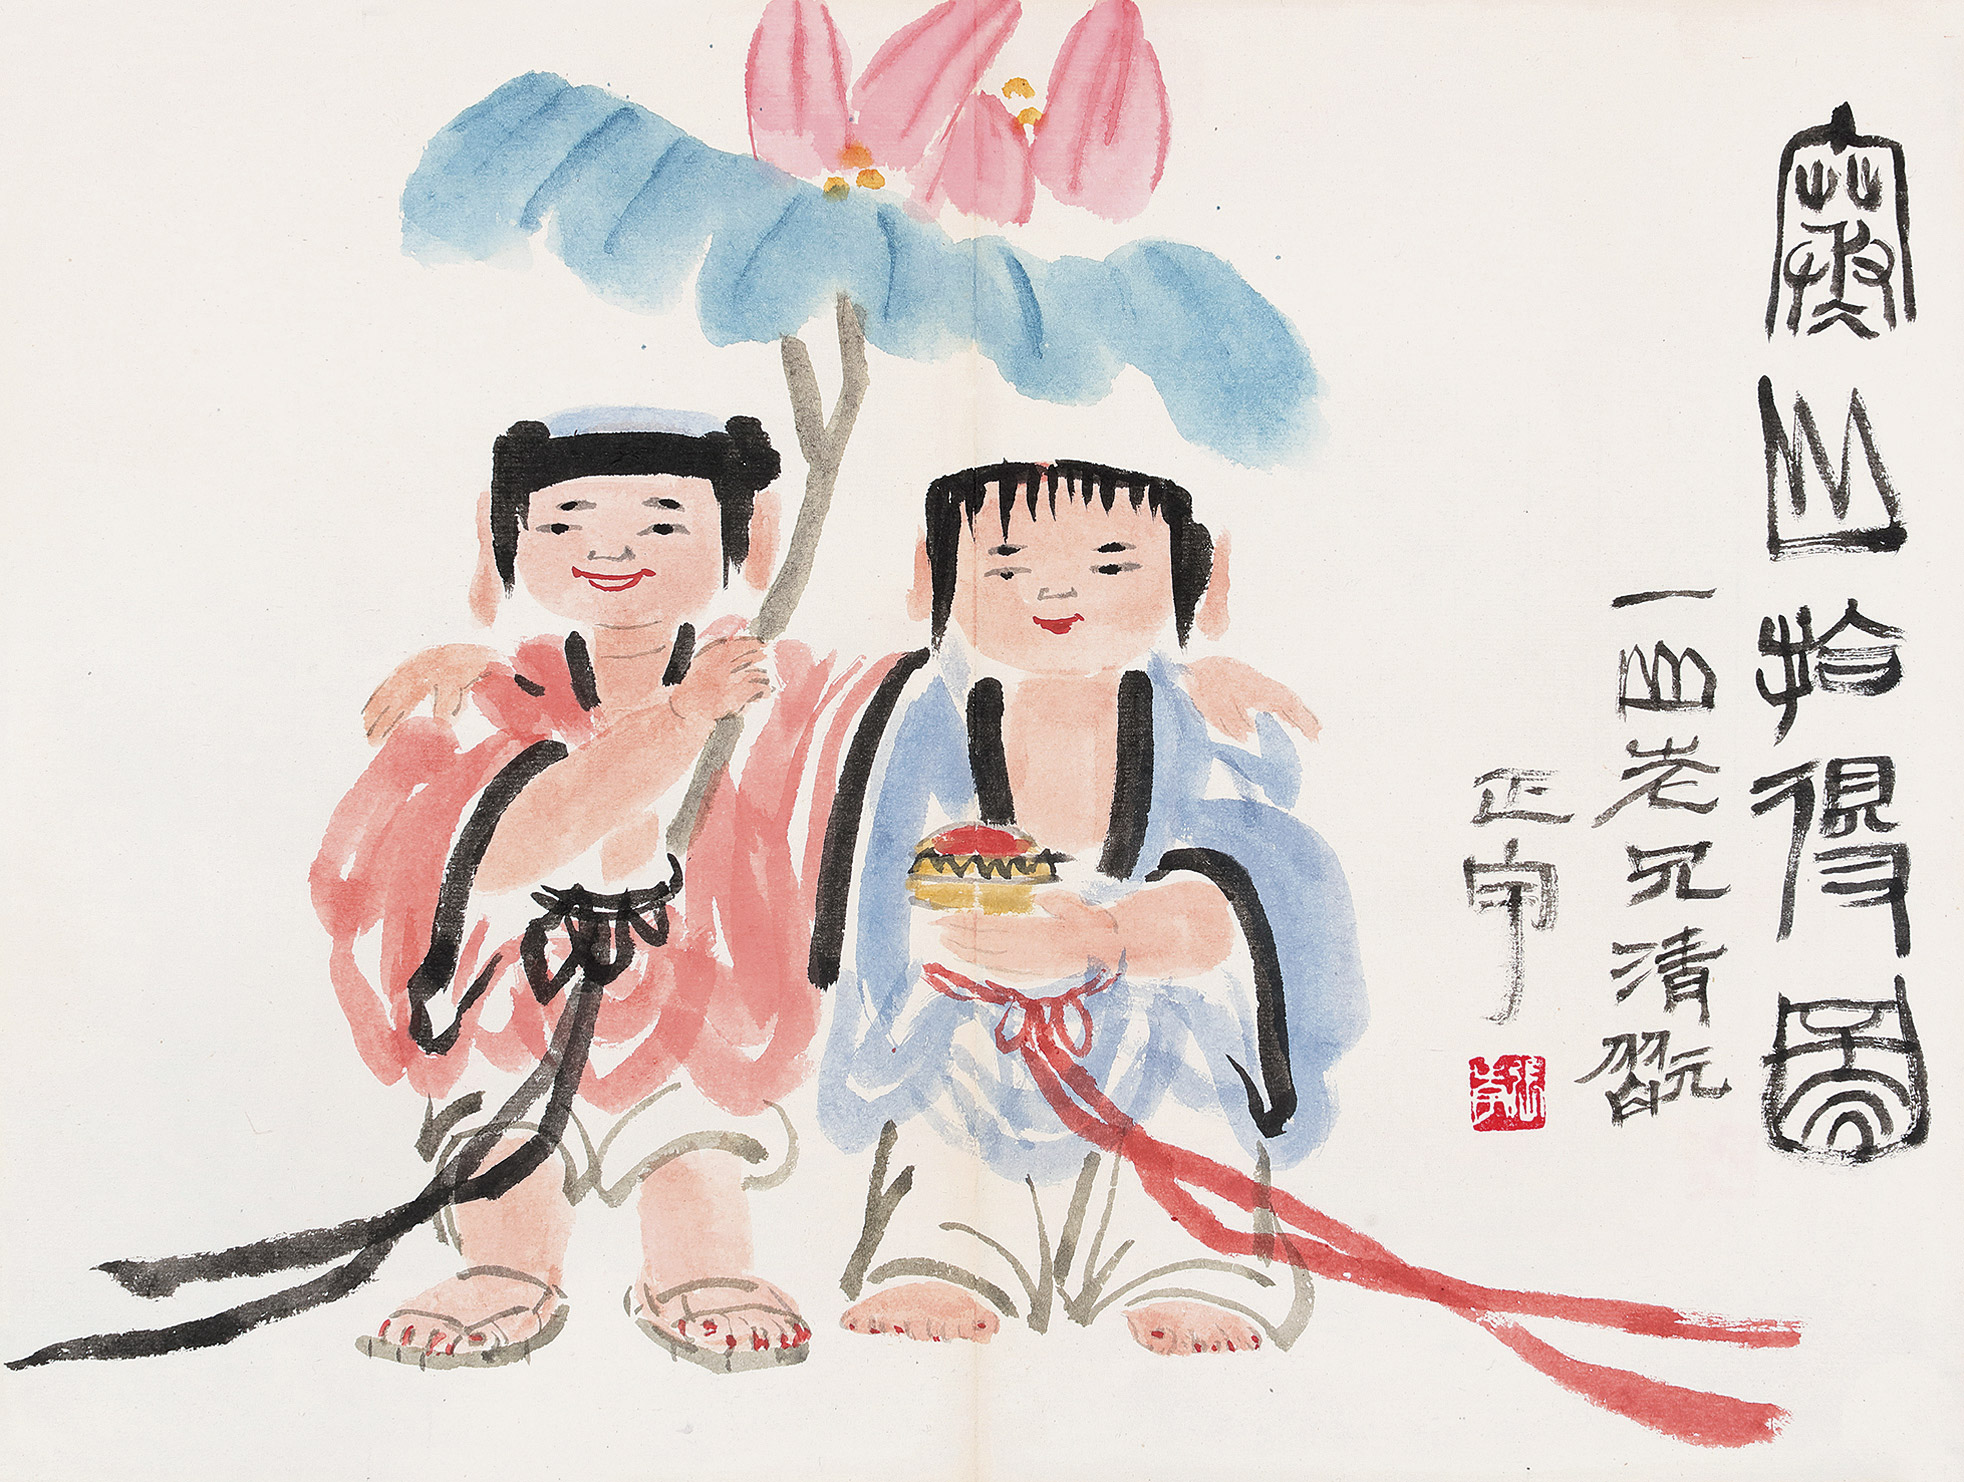 寒山拾得圖
一山老兄清翫
正宇